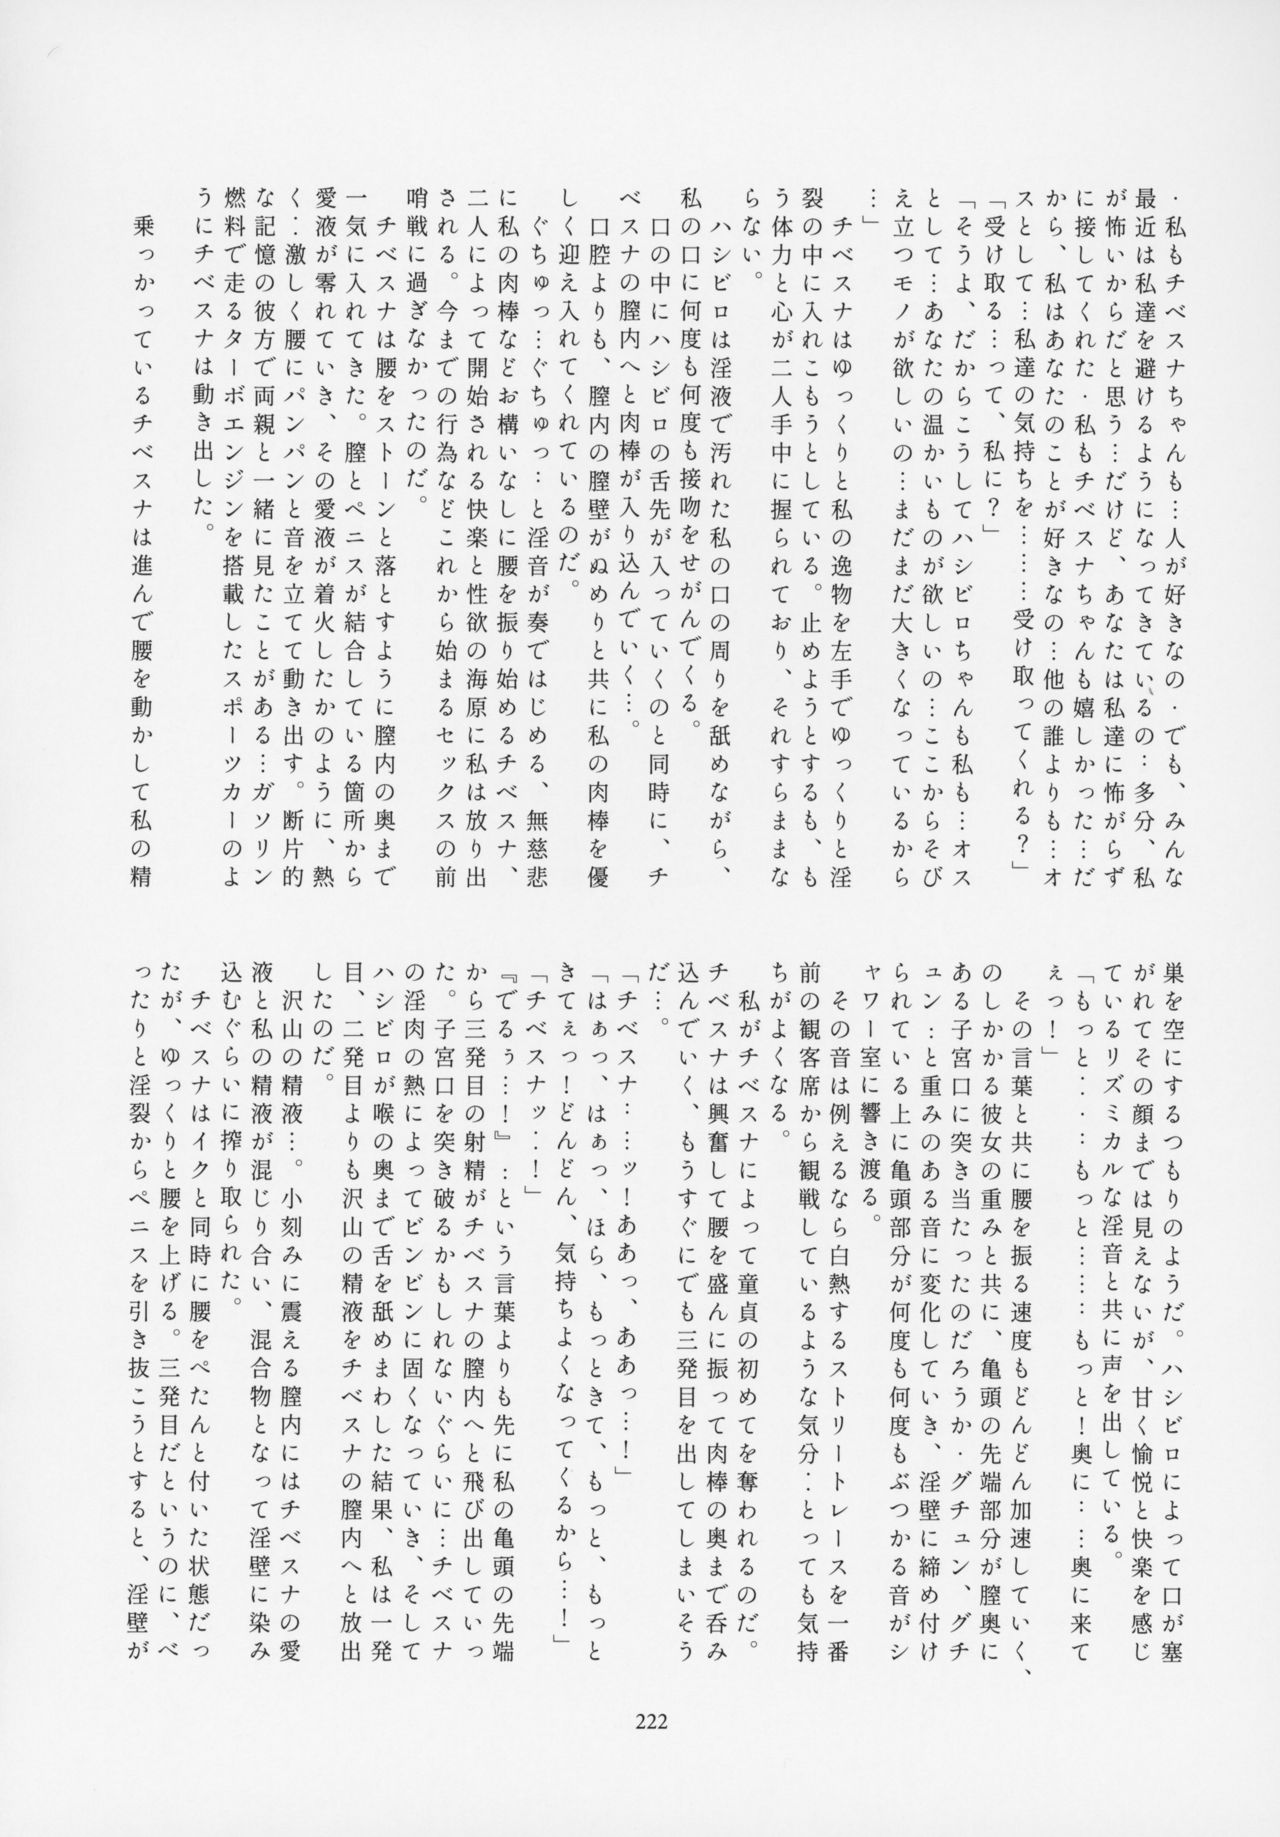 ・私もチベスナちゃんも…人が好きなの・でも、みんな
最近は私達を避けるようになってきているの‥多分、私
が怖いからだと思う…だけど、あなたは私達に怖がらず
に接してくれた・私もチベスナちゃんも嬉しかった…だ
から、私はあなたのことが好きなの…他の誰よりも…オ
スとして…私達の気持ちを………受け取ってくれる？」
「受け取る…って、私に？」
「そうよ、だからこうしてハシビロちゃんも私も…オス
として…あなたの温かいものが欲しいの…ここからそび
え立つモノが欲しいの…まだまだ大きくなっているから
…」
チベスナはゆっくりと私の逸物を左手でゆっくりと淫
裂の中に入れこもうとしている。止めようとするも、も
う体力と心が二人手中に握られており、それすらままな
らない。
ハシビロは淫液で汚れた私の口の周りを舐めながら、
私の口に何度も何度も接吻をせがんでくる。
口の中にハシビロの舌先が入っていくのと同時に、チ
ベスナの膣内へと肉棒が入り込んでいく…。
口腔よりも、膣内の膣壁がぬめりと共に私の肉棒を優
しく迎え入れてくれているのだ。
ぐちゅっ…ぐちゅっ…と淫音が奏ではじめる、無慈悲
に私の肉棒などお構いなしに腰を振り始めるチベスナ、
二人によって開始される快楽と性欲の海原に私は放り出
される。今までの行為などこれから始まるセックスの前
哨戦に過ぎなかったのだ。
チベスナは腰をストーンと落とすように膣内の奥まで
一気に入れてきた。膣とペニスが結合している箇所から
愛液が零れていき、その愛液が着火したかのように、熱
く‥激しく腰にパンパンと音を立てて動き出す。断片的
な記憶の彼方で両親と一緒に見たことがある…ガソリン
燃料で走るターボエンジンを搭載したスポーツカーのよ
うにチベスナは動き出した。
乗っかっているチベスナは進んで腰を動かして私の精
巣を空にするつもりのようだ。ハシビロによって口が塞
がれてその顔までは見えないが、甘く愉悦と快楽を感じ
ているリズミカルな淫音と共に声を出している。
「もっと‥‥もっと……もっと！奥に…‥奥に来て
ぇっ！」
その言葉と共に腰を振る速度もどんどん加速していく、
のしかかる彼女の重みと共に、亀頭の先端部分が膣奥に
ある子宮口に突き当たったのだろうか・グチュン、グチ
ュン‥と重みのある音に変化していき、淫壁に締め付け
られている上に亀頭部分が何度も何度もぶつかる音がシ
ャワー室に響き渡る。
その音は例えるなら白熱するストリートレースを一番
前の観客席から観戦しているような気分‥とっても気持
ちがよくなる。
私がチベスナによって童貞の初めてを奪われるのだ。
チベスナは興奮して腰を盛んに振って肉棒の奥まで呑み
込んでいく、もうすぐにでも三発目を出してしまいそう
だ…。
「チベスナ…‥ッ！ああっ、ああっ…！」
「はぁっ、はぁっ、ほら、もっときて、もっと、もっと
きてぇっ！どんどん、気持ちよくなってくるから…！」
「チベスナッ‥！」
『でるぅ…！』‥という言葉よりも先に私の亀頭の先端
から三発目の射精がチベスナの膣内へと飛び出していっ
た。子宮口を突き破るかもしれないぐらいに…チベスナ
の淫肉の熱によってビンビンに固くなっていき、そして
ハシビロが喉の奥まで舌を舐めまわした結果、私は一発
目、二発目よりも沢山の精液をチベスナの膣内へと放出
したのだ。
沢山の精液…。小刻みに震える膣内にはチベスナの愛
液と私の精液が混じり合い、混合物となって淫壁に染み
込むぐらいに搾り取られた。
チベスナはイクと同時に腰をぺたんと付いた状態だっ
たが、ゆっくりと腰を上げる。三発目だというのに、べ
ったりと淫裂からペニスを引き抜こうとすると、淫壁が
222